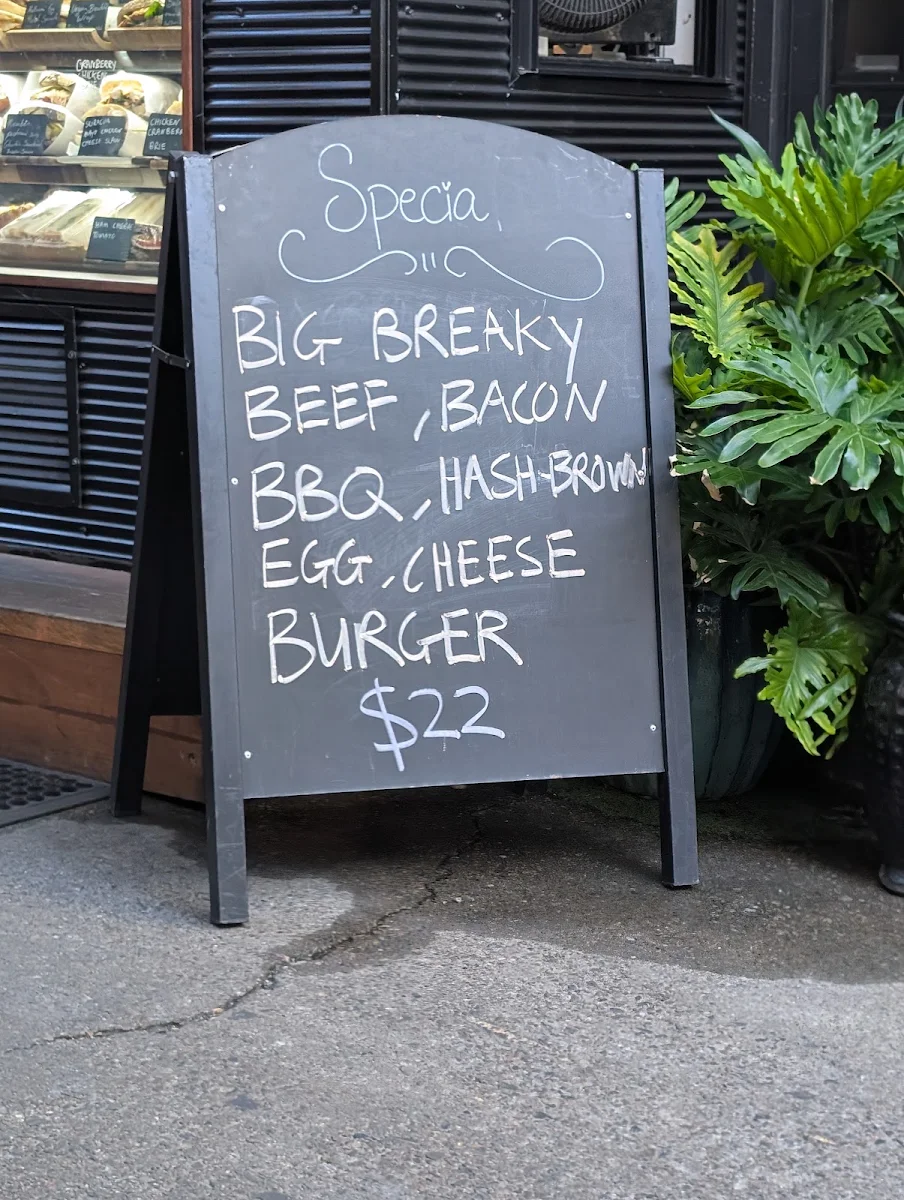 CRANBERRY
CHICKEN
CHICKEN
CRANBERRY
BRIE
SRIRACHA
MAYO CHICKEN
CHEESE SLAW
HAM CHEESE
TOMATO
Specia
BIG BREAKY
BEEF , BACON
BBQ , HASH-BROWN
EGG , CHEESE
BURGER
$22